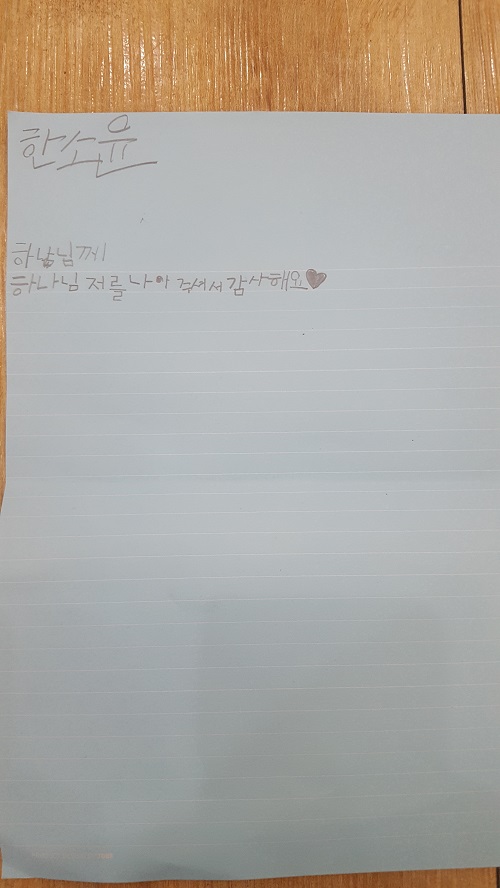 한소윤
하남님께
하나님 저를 나아 주셔서 감사해요♥